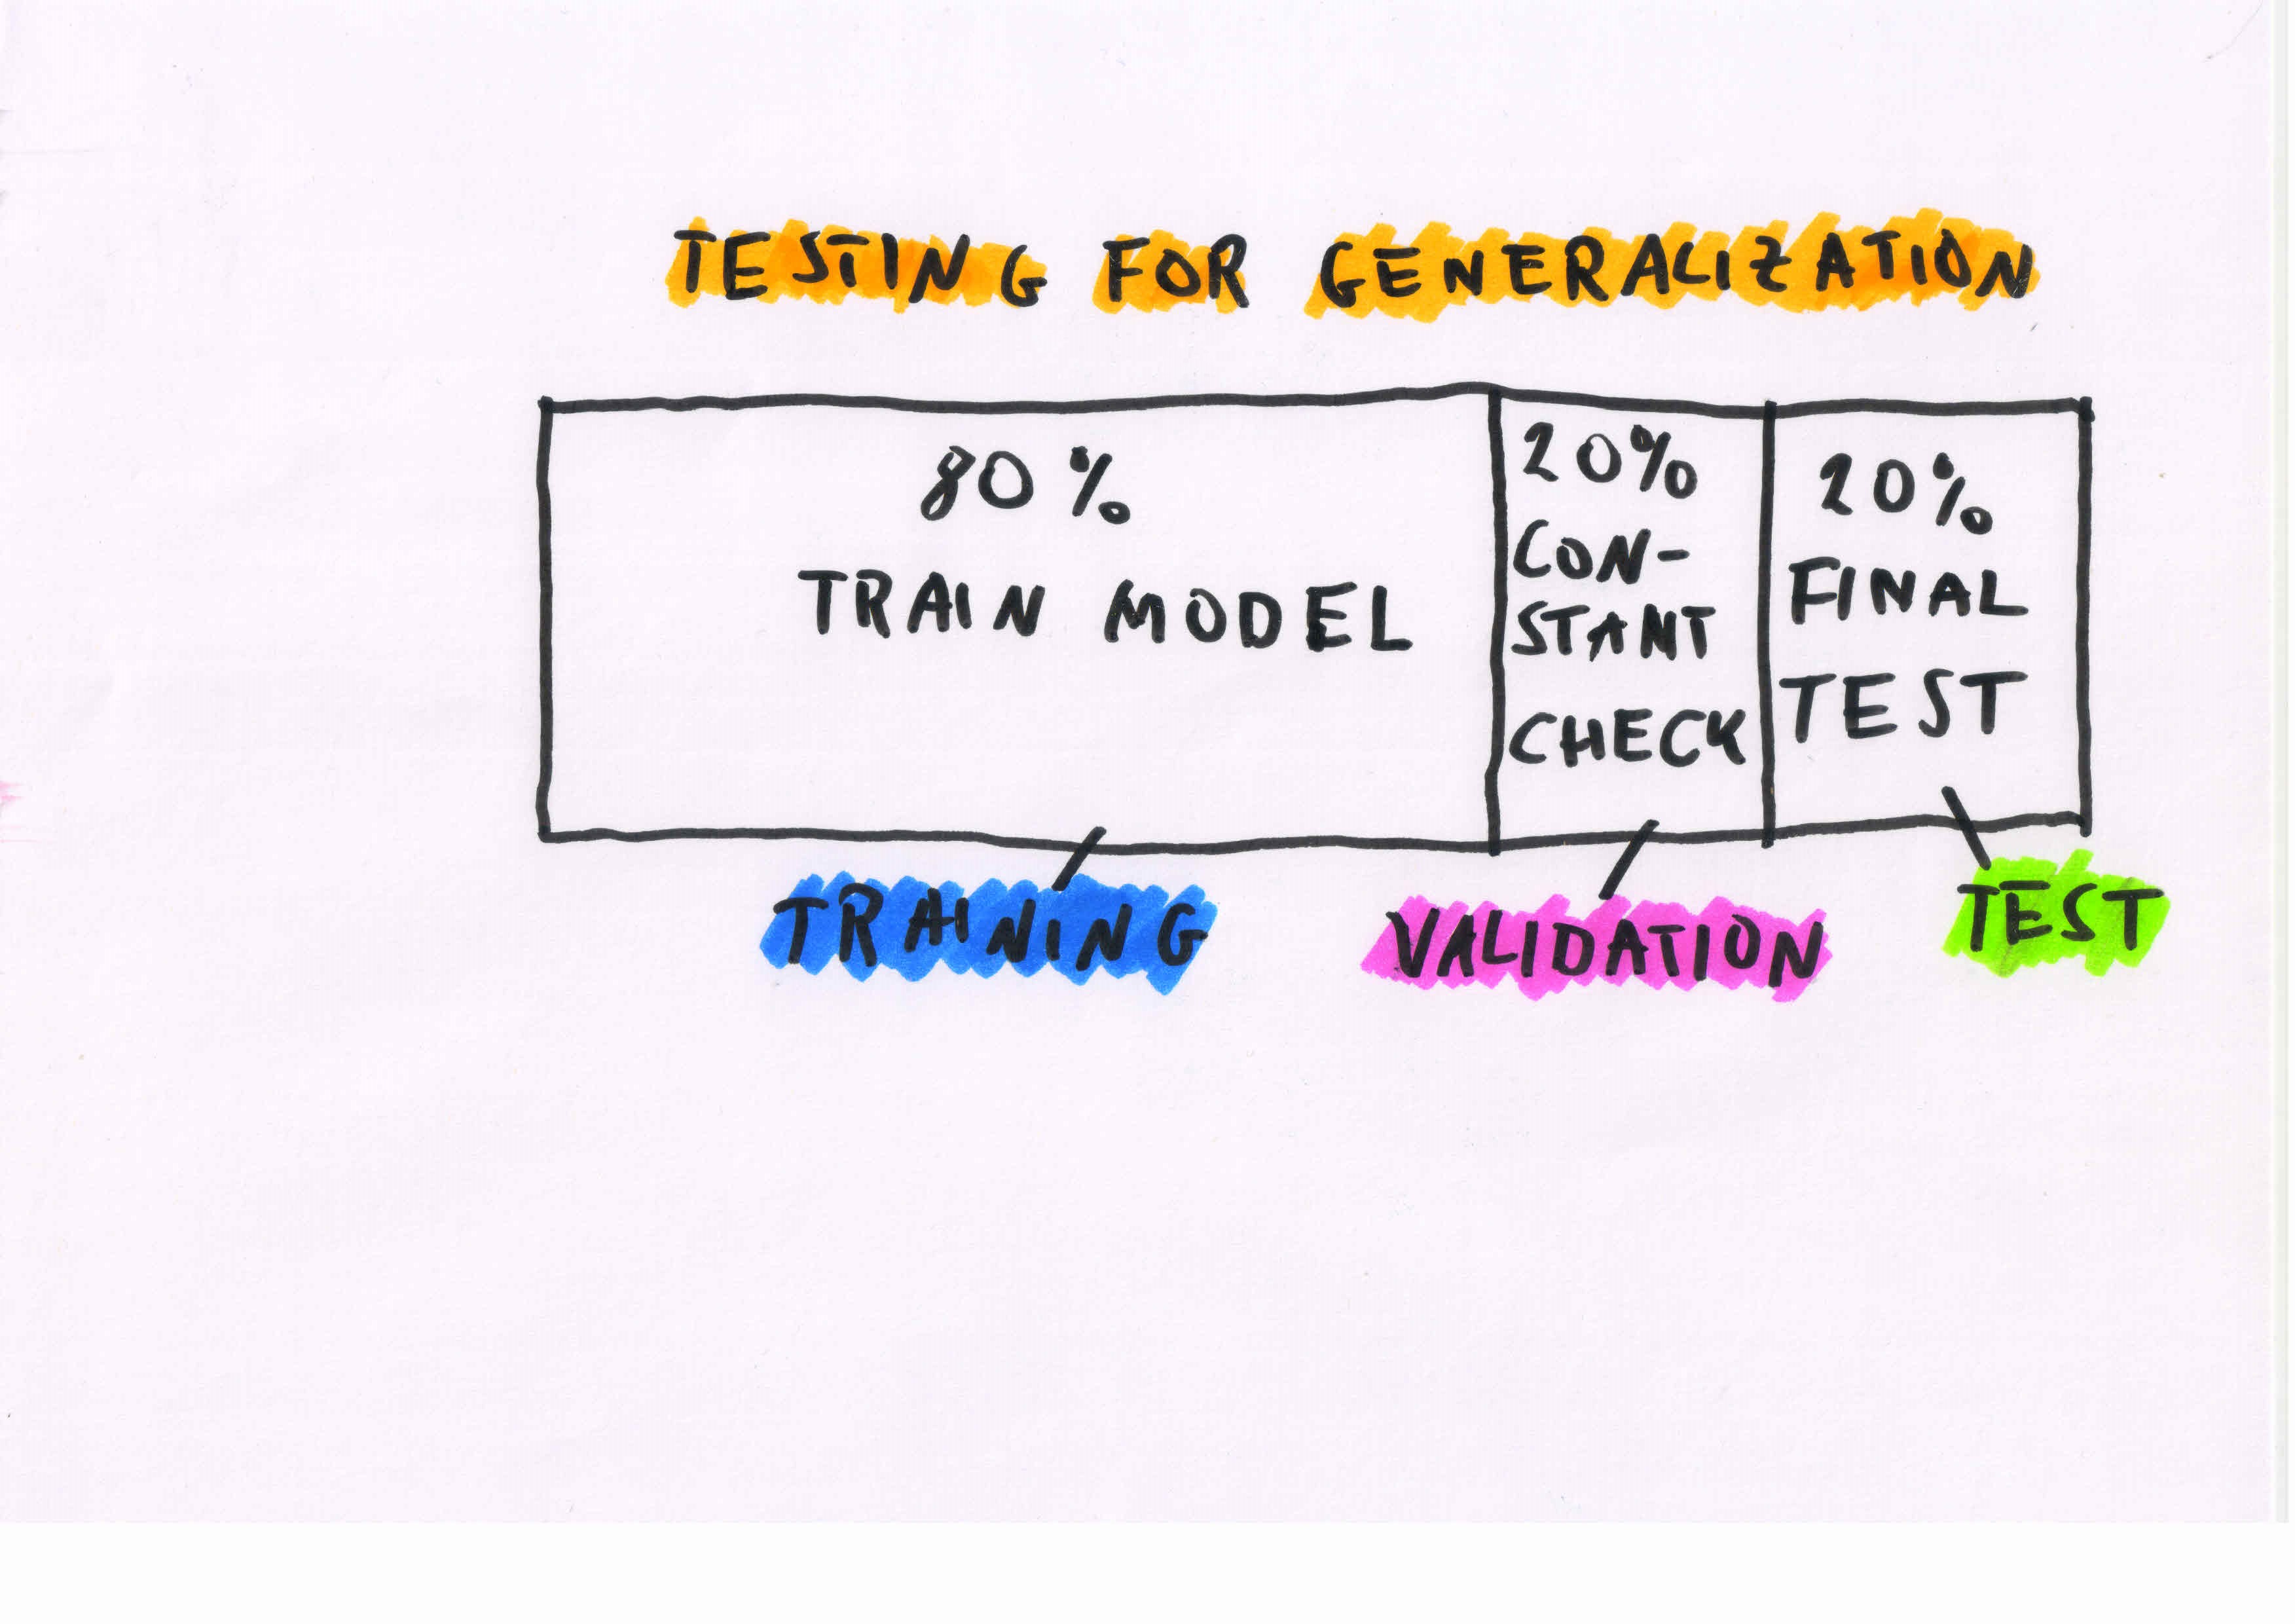 TESTING FOR GENERALIZATION
80%
TRAIN MODEL
20%
CON-
STANT
CHECK
20%
FINAL
TEST
TRAINING
VALIDATION
TEST